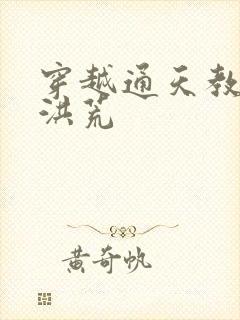 穿越通天教
洪荒
黄奇帆